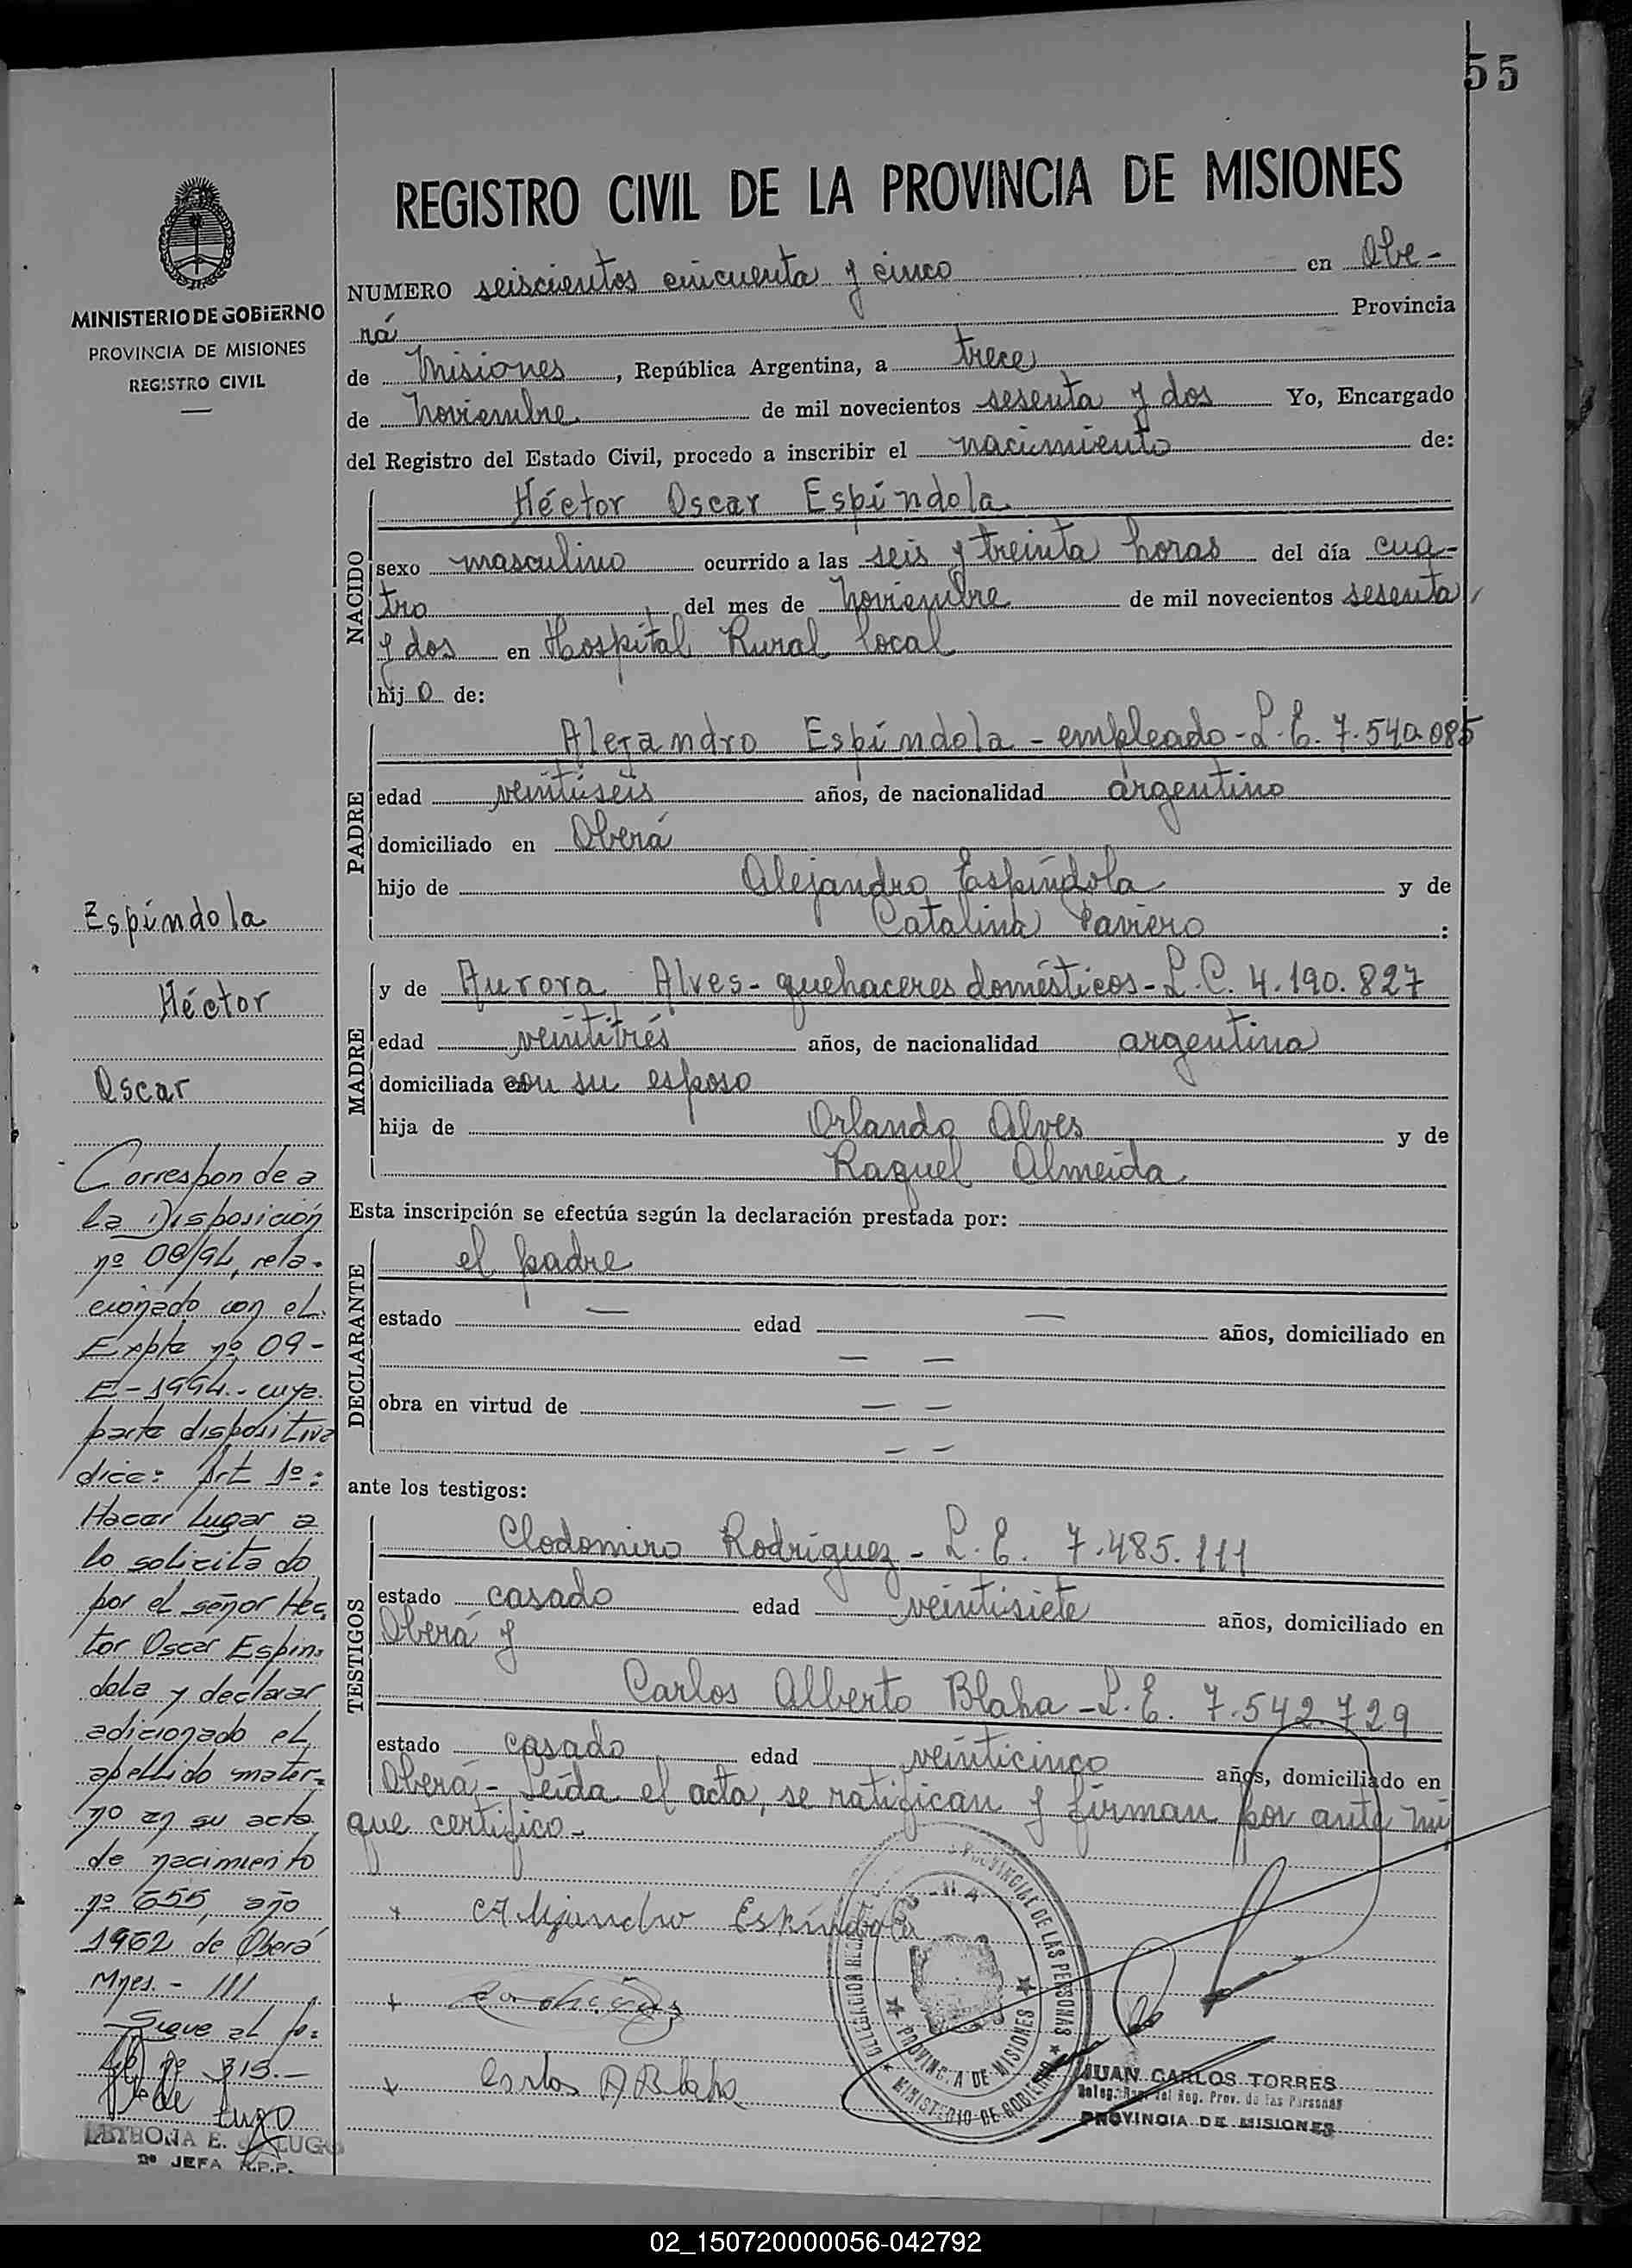 55
REGISTRO CIVIL DE LA PROVINCIA DE MISIONES
MINISTERIO DE GOBIERNO
PROVINCIA DE MISIONES
REGISTRO CIVIL
NUMERO seiscientos cincuenta y cinco en Obe-
rá Provincia
de Misiones, República Argentina, a trece
de Noviembre de mil novecientos sesenta y dos Yo, Encargado
del Registro del Estado Civil, procedo a inscribir el nacimiento de:
NACIDO
Héctor Oscar Espíndola
sexo masculino ocurrido a las seis y treinta horas del día cua-
tro del mes de Noviembre de mil novecientos sesenta
y dos en Hospital Rural local
hijo de:
PADRE
Alejandro Espíndola - empleado - L. E. 7.540.085
edad veintiseis años, de nacionalidad argentino
domiciliado en Oberá
hijo de Alejandro Espíndola y de
Catalina :
MADRE
y de Aurora Alves - quehaceres domésticos - L. C. 4.190.827
edad veintitrés años, de nacionalidad argentina
domiciliada con su esposo
hija de Orlando Alves y de
Raquel Almeida
Esta inscripción se efectúa según la declaración prestada por:
DECLARANTE
el padre
estado — edad — años, domiciliado en
— —
obra en virtud de — —
— —
ante los testigos:
TESTIGOS
Clodomiro Rodríguez - L. E. 7.485.111
estado casado edad veintisiete años, domiciliado en
Oberá y
Carlos Alberto Blaha - L. E. 7.542.729
estado casado edad veinticinco años, domiciliado en
Oberá - Leída el acta, se ratifican y firman por ante mí
que certifico -
Alejandro Espíndola
Carlos A Blaha
PROVINCIAL DE LAS PERSONAS
PROVINCIA DE MISIONES
MINISTERIO DE GOBIERNO
JUAN CARLOS TORRES
Reg. Prov. de las Personas
PROVINCIA DE MISIONES
Espíndola
Héctor
Oscar
Corresponde a
la Disposición
nº 08/94, rela-
cionado con el
Expte nº 09-
E-1994.- cuya
parte dispositiva
dice: Art 1º:
Hacer Lugar a
lo solicitado
por el señor Héc
tor Oscar Espín-
dola y declarar
adicionado el
apellido mater-
no en su acta
de nacimiento
nº 655, año
1962 de Oberá
Mnes. - ///
Sigue al fo-
lio nº 315.-
de Lugo
E. de LUGO
2º JEFA R.P.P.
02_150720000056-042792